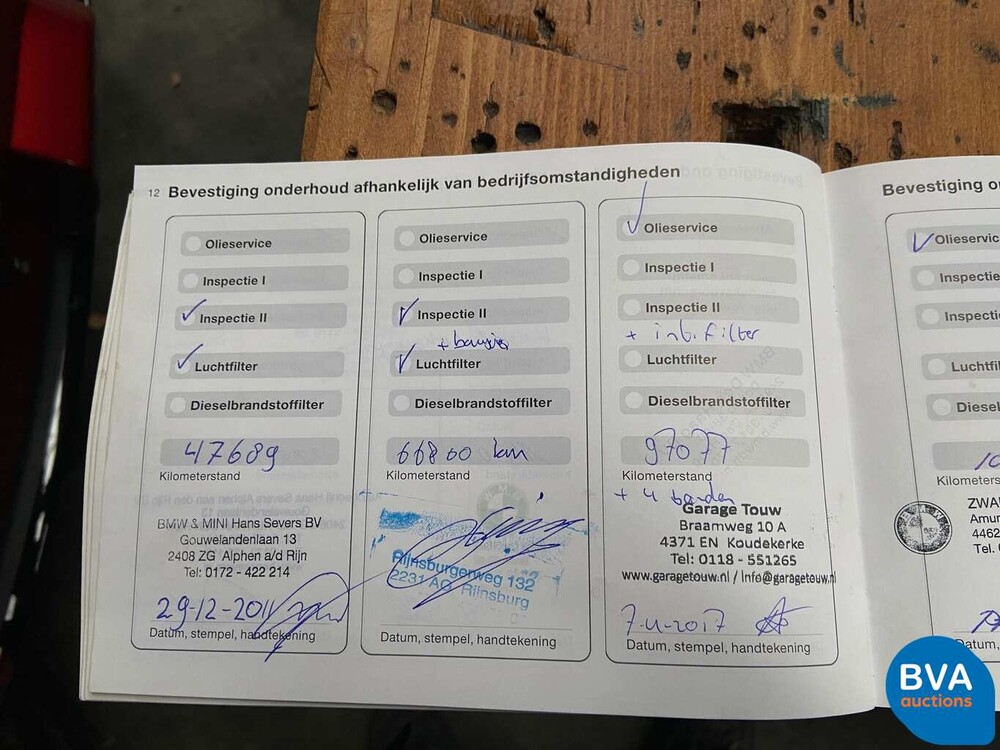 12 Bevestiging onderhoud afhankelijk van bedrijfsomstandigheden
Olieservice
Inspectie I
✓ Inspectie II
✓ Luchtfilter
Dieselbrandstoffilter
47689
Kilometerstand
BMW & MINI Hans Severs BV
Gouwelandenlaan 13
2408 ZG Alphen a/d Rijn
Tel: 0172 - 422 214
29-12-2011
Datum, stempel, handtekening
Olieservice
Inspectie I
✓ Inspectie II
+
✓ Luchtfilter
Dieselbrandstoffilter
66800 km
Kilometerstand
Rijnsburgerweg 132
2231 AG Rijnsburg
Datum, stempel, handtekening
✓ Olieservice
Inspectie I
Inspectie II
+ int. filter
Luchtfilter
Dieselbrandstoffilter
97077
Kilometerstand
+ 4 banden
Garage Touw
Braamweg 10 A
4371 EN Koudekerke
Tel: 0118 - 551265
www.garagetouw.nl / info@garagetouw.nl
2017
Datum, stempel, handtekening
Bevestiging o
✓ Olieservic
Inspectie
Inspecti
Luchtfil
Diesel
10
Kilometers
ZWA
Amur
4462
Tel.
atum,
BVA
auctions